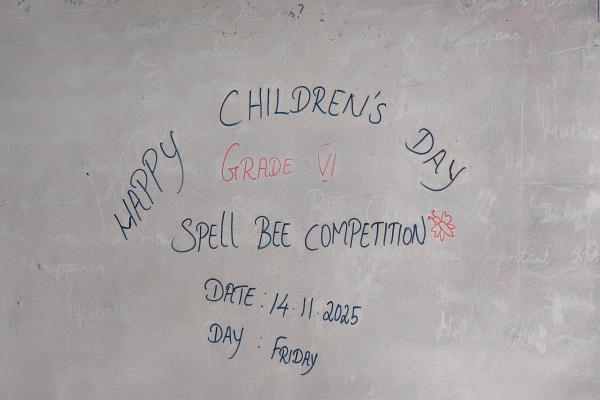 HAPPY CHILDREN'S DAY
GRADE : VI
SPELL BEE COMPETITION
DATE : 14.11.2025
DAY : FRIDAY